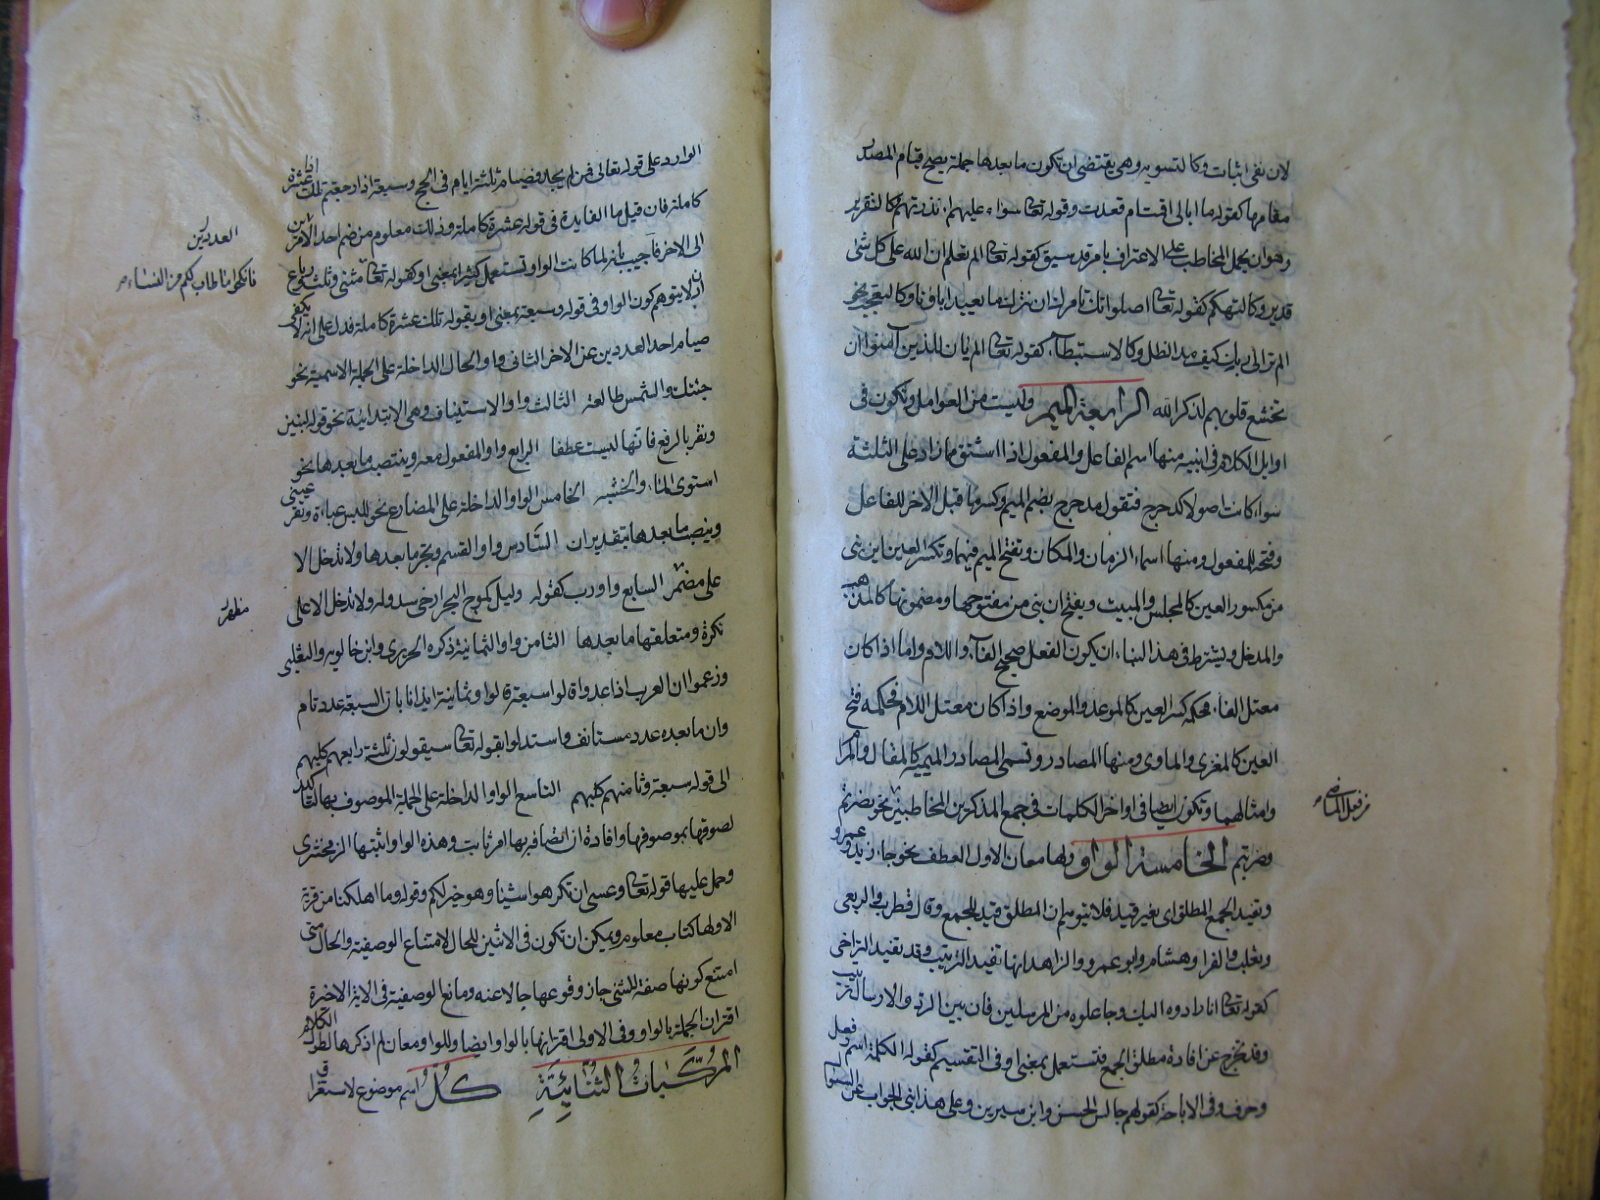 لان نفى اثبات وكالتسوية وهى يقتضى ان تكون ما بعدها جملة يصح قيام المصدر
مقامها كقوله ما ابالى اقمت ام قعدت وقوله تعا سواء عليهم ءانذرتهم كالتقرير
وهو ان يحمل المخاطب على الاعتراف بامر قد سبق كقوله تعا الم تعلم ان الله على كل شئ
قدير وكالتهكم كقوله تعا اصلواتك تامرك ان نترك ما يعبد اباؤنا وكالتعجب نحو
الم تر الى ربك كيف مد الظل وكالاستبطاء كقوله تعا الم يان للذين آمنوا ان
تخشع قلوبهم لذكر الله الرابعة الميم وليست من العوامل وتكون فى
اوايل الكلام فى ابنية منها اسم الفاعل والمفعول اذا اشتق مما زاد على الثلثة
سواء كانت اصولا كدحرج فتقول مدحرج بضم الميم وكسر ما قبل الاخر للفاعل
وفتحه للمفعول ومنها اسماء الزمان والمكان وتفتح الميم فيهما وتكسر العين ان بنى
من مكسور العين كالمجلس والمبيت ويفتح ان بنى من مفتوحها ومضمونها كالمذهب
والمدخل ويشترط فى هذا البناء ان يكون الفعل صحيح الفاء واللام واما اذا كان
معتل الفاء فحكمه كسر العين كالموعد والموضع واذا كان معتل اللام فحكمه فتح
العين كالمغزى والماوى ومنها المصادر وتسمى المصادر الميمية كالمقال والمراد
وامثالهما وتكون ايضا فى اواخر الكلمات فى جمع المذكر من المخاطبين نحو بضربكم
وضربتم الخامسة الواو ولها معان الاول العطف نحو جاء زيد وعمرو
وتفيد الجمع المطلق اى بغير قيد فلا يتوهم ان المطلق قيد للجمع وقال قطرب والربعى
وثعلب والفرا وهشام وابو عمرو والزاهد انها تفيد الترتيب وقد تفيد التراخى
كقوله تعا انا رادوه اليك وجاعلوه من المرسلين فان بين الرد والارسال
وقد تخرج عن افادة مطلق الجمع فتستعمل بمعنى او فى التقسيم كقوله الكلمة اسم وفعل
وحرف وفى الاباحة كقولهم جالس الحسن وابن سيرين وعلى هذا بنى الجواب عن السؤال
الوارد على قوله تعالى فمن لم يجد فصيام ثلثة ايام فى الحج وسبعة اذا رجعتم تلك عشرة
كاملة فان قيل ما الفايدة فى قوله عشرة كاملة وذلك معلوم من ضم احد الامرين
الى الاخر فاجيب بانه لما كانت الواو تستعمل كثيرا بمعنى او كقوله تعا مثنى وثلث ورباع
لايتوهم كون الواو فى قوله وسبعة بمعنى او بقوله تلك عشرة كاملة فدل على انه لا يكفى
صيام احد العددين عن الاخر الثانى واو الحال الداخلة على الجملة الاسمية نحو
جئتك والشمس طالعة الثالث واو الاستيناف وهى الابتدائية نحو قوله لنبين
ونقر بالرفع فانها ليست عطفا الرابع واو المفعول معه وينتصب ما بعدها نحو
استوى الماء والخشبة الخامس الواو الداخلة على المضارع نحو للبس عباءة وتقر عينى
وينصب ما بعدها بتقدير ان السادس واو القسم ويجر ما بعدها ولا تدخل الا
على مضمر السابع واو رب كقوله وليل كموج البحر ارخى سدوله ولا تدخل الا على
نكرة ومتعلقها ما بعدها الثامن واو الثمانية ذكره الحريرى وابن خالويه والثعلبى
وزعموا ان العرب اذا عدوا قالوا سبعة قالوا وثمانية ايذانا بان السبعة عدد تام
وان ما بعده عدد مستانف واستدلوا بقوله تعا سيقولون ثلثة رابعهم كلبهم
الى قوله سبعة وثامنهم كلبهم التاسع الواو الداخلة على الجملة الموصوف بها لتاكيد
لصوقها بموصوفها وافادة ان اتصافه بها امر ثابت وهذه الواو اثبتها الزمخشرى
وحمل عليها قوله تعا وعسى ان تكرهوا شيئا وهو خير لكم وقوله وما اهلكنا من قرية
الا ولها كتاب معلوم ويمكن ان تكون فى الاثنين للحال لامتناع الوصفية والحال متى
امتنع كونها صفة للشئ جاز وقوعها حالا عنه ومانع الوصفية فى الاية الاخيرة
اقتران الجملة بالواو وفى الاولى اقترانها بالواو ايضا وللواو معان لم اذكرها لطول الكلام
المركبات الثنائية كل اسم موضوع لاستغراق
العددين
فانكحوا ما طاب لكم من النساء
مظهر